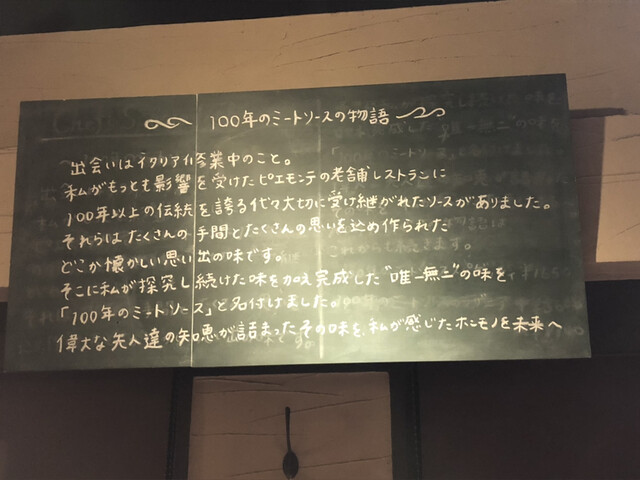 100年のミートソースの物語
出会いはイタリア修業中のこと。
私がもっとも影響を受けたピエモンテの老舗レストランに
100年以上の伝統を誇る代々大切に受け継がれたソースがありました。
それらはたくさんの手間とたくさんの思いを込め作られた
どこか懐かしい思い出の味です。
そこに私が探究し続けた味を加え完成した"唯一無二"の味を
「100年のミートソース」と名付けました。
偉大な先人達の知恵が詰まったその味を、私が感じたホンモノを未来へ